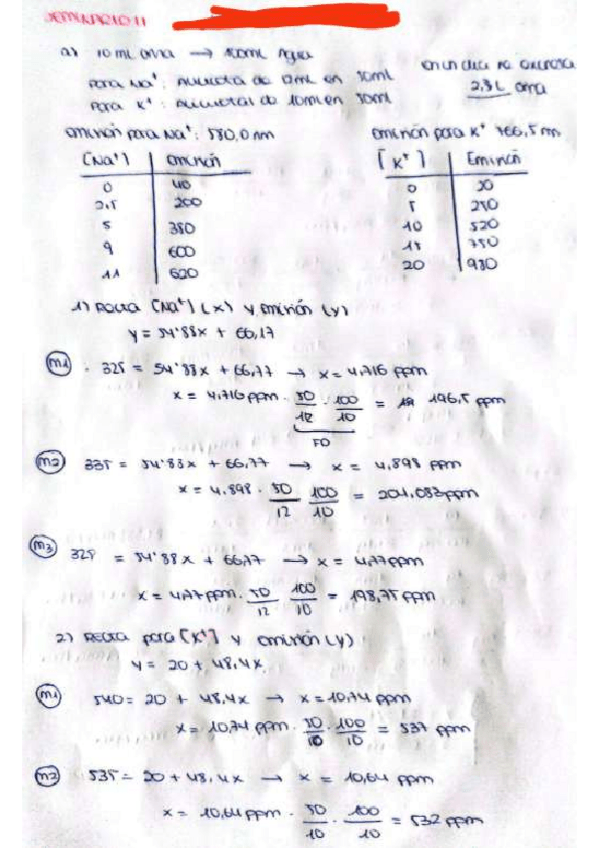 SEMINARIO 11
a) 10 mL orina → 100mL Agua
Para Na⁺: Alicuota de 12mL en 50mL
Para K⁺: Alicuotas de 10mL en 50ml
en un día se excreta
2,3L orina
emisión para Na⁺: 580,0 nm
Emisión para K⁺ 766,5 nm
[Na⁺] | emisión
0 | 40
2,5 | 200
5 | 380
9 | 600
11 | 620
[K⁺] | Emisión
0 | 30
5 | 250
10 | 520
15 | 750
20 | 980
1) Recta [Na⁺] (x) y emisión (y)
y = 54'88x + 66,17
M1 · 325 = 54'88x + 66,77 → x = 4,716 ppm
x = 4,716 ppm · 50/12 · 100/10 = 196,5 ppm
FD
M2 335 = 54'88x + 66,77 → x = 4,898 ppm
x = 4,898 · 50/12 100/10 = 204,083ppm
M3 328 = 54'88x + 66,77 → x = 4,77ppm
x = 4,77ppm · 50/12 100/10 = 198,75 ppm
2) Recta para [K⁺] y emisión (y)
y = 20 + 48,4x
M1 540 = 20 + 48,4x → x = 10,74 ppm
x = 10,74 ppm · 50/10 · 100/10 = 537 ppm
M2 535 = 20 + 48,4x → x = 10,64 ppm
x = 10,64ppm · 50/10 · 100/10 = 532 ppm